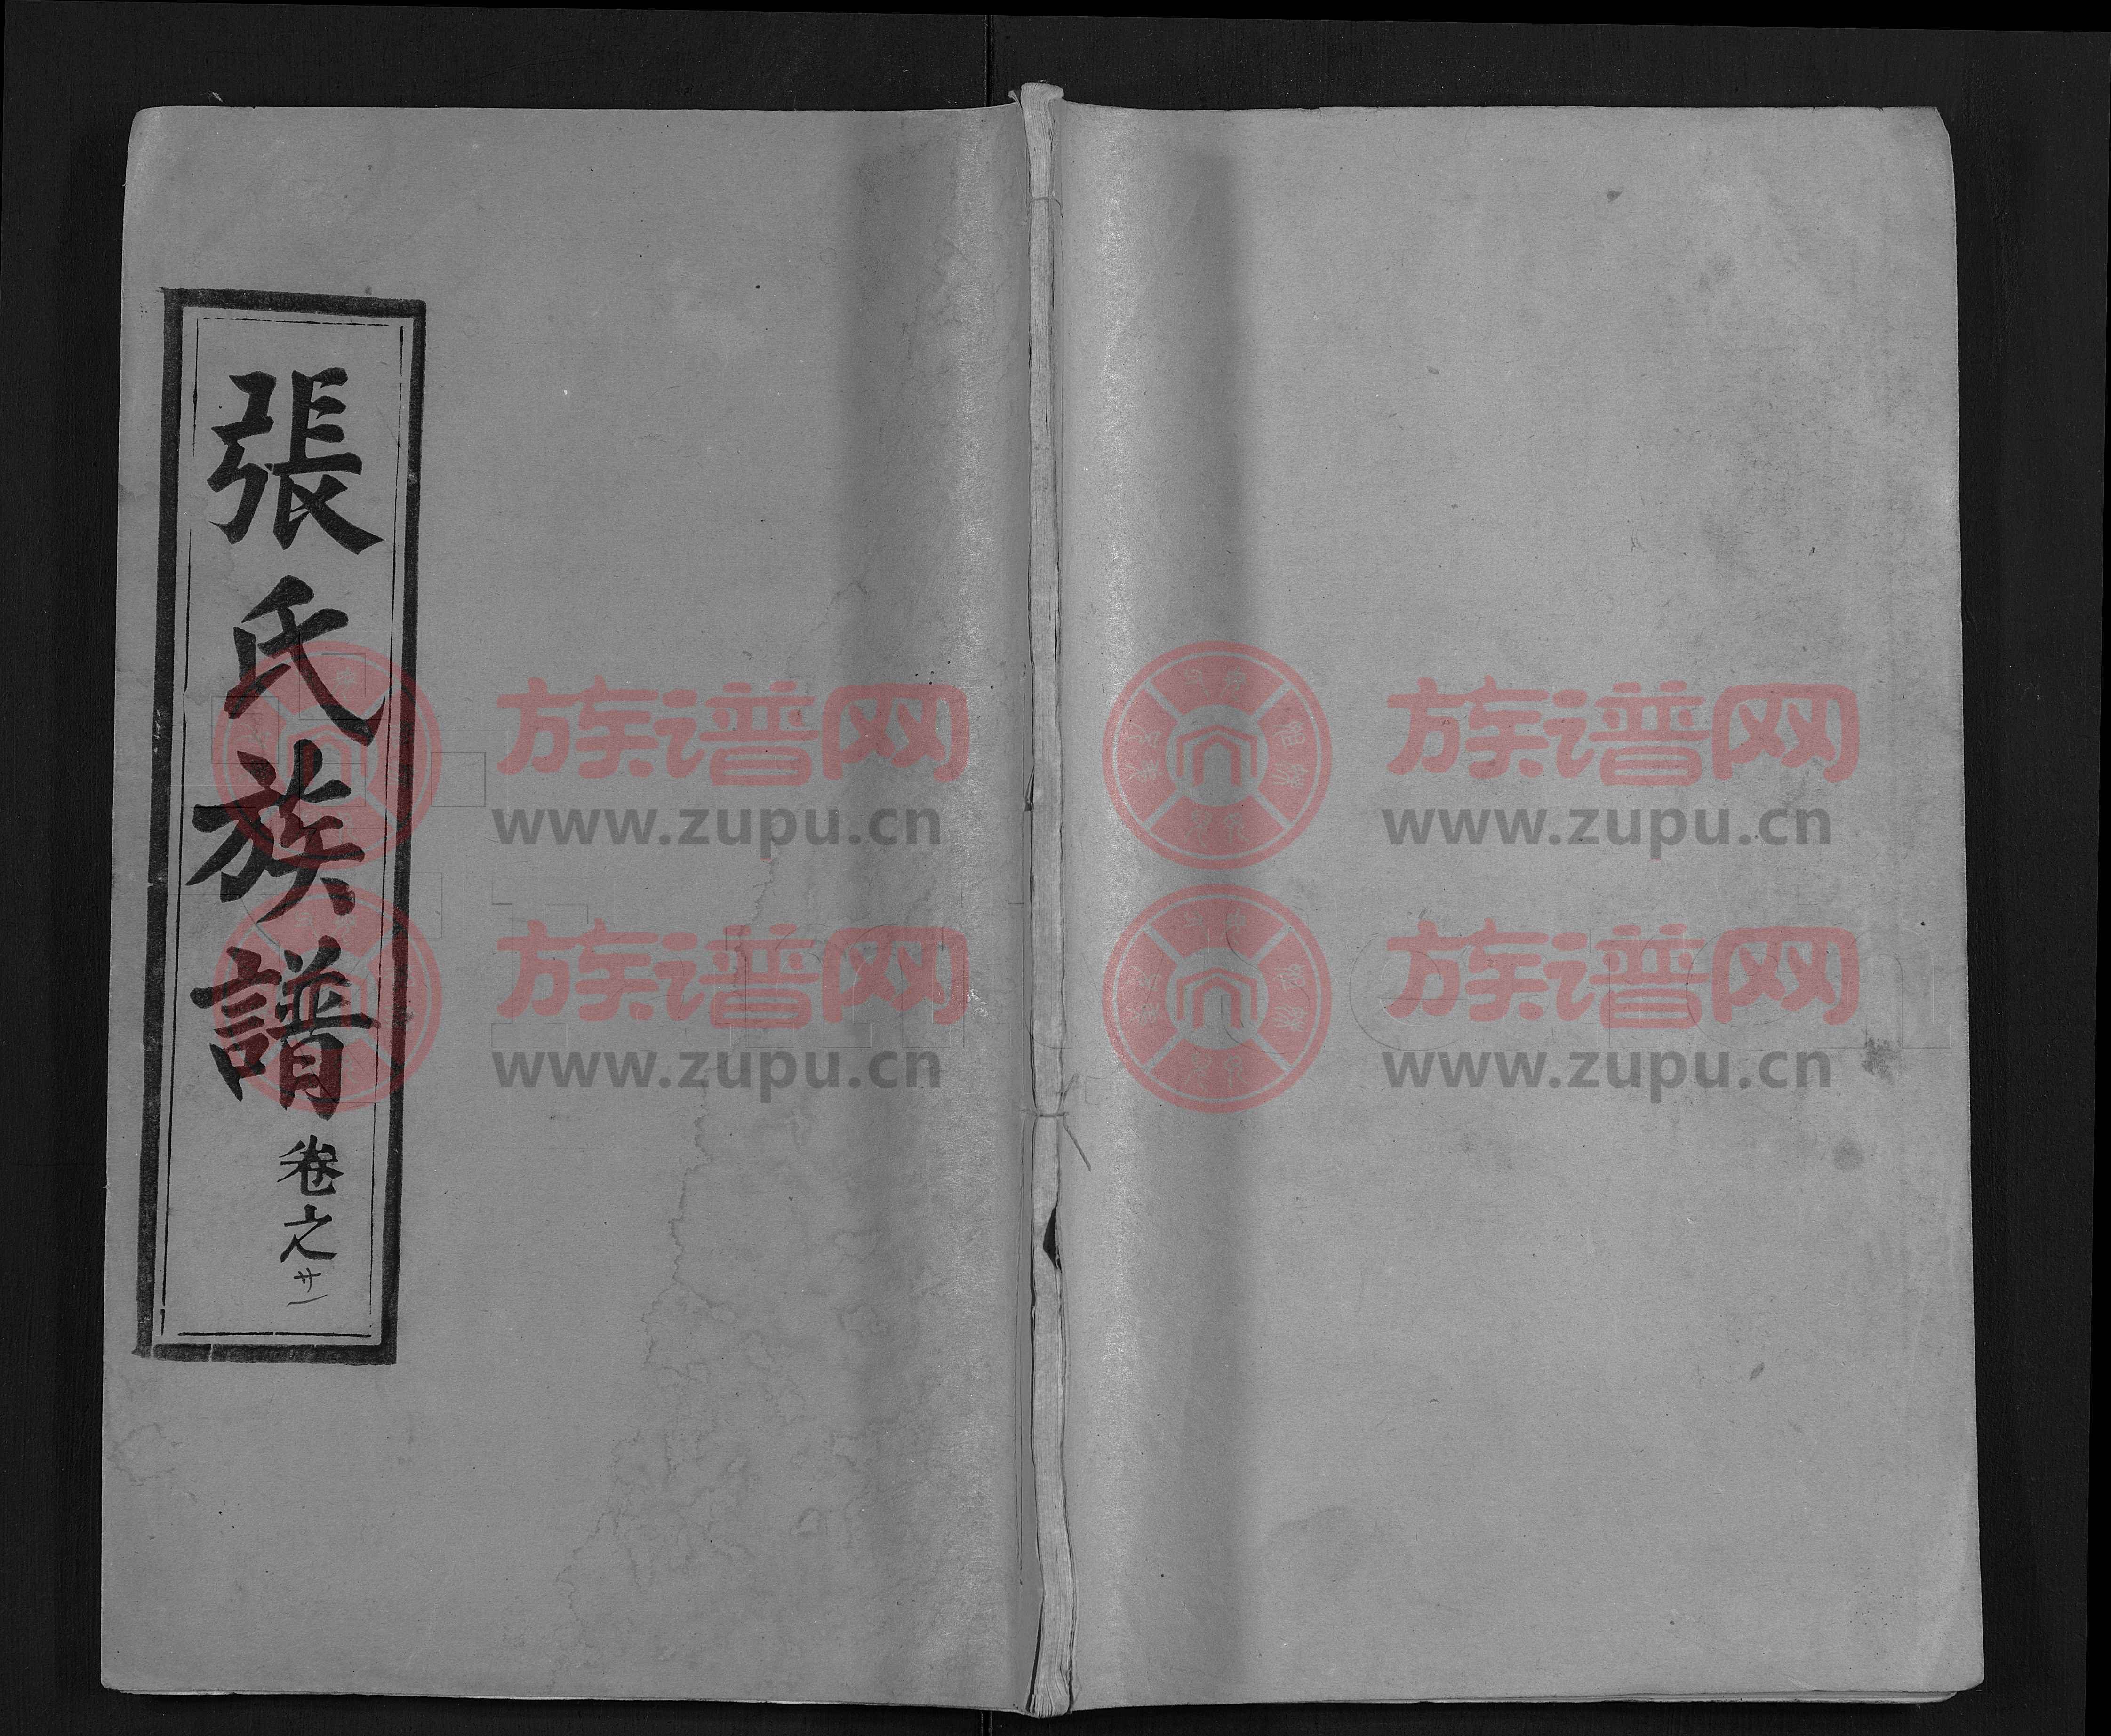 張氏族譜 卷之廿一
族谱网
www.zupu.cn
族谱网
www.zupu.cn
族谱网
www.zupu.cn
族谱网
www.zupu.cn